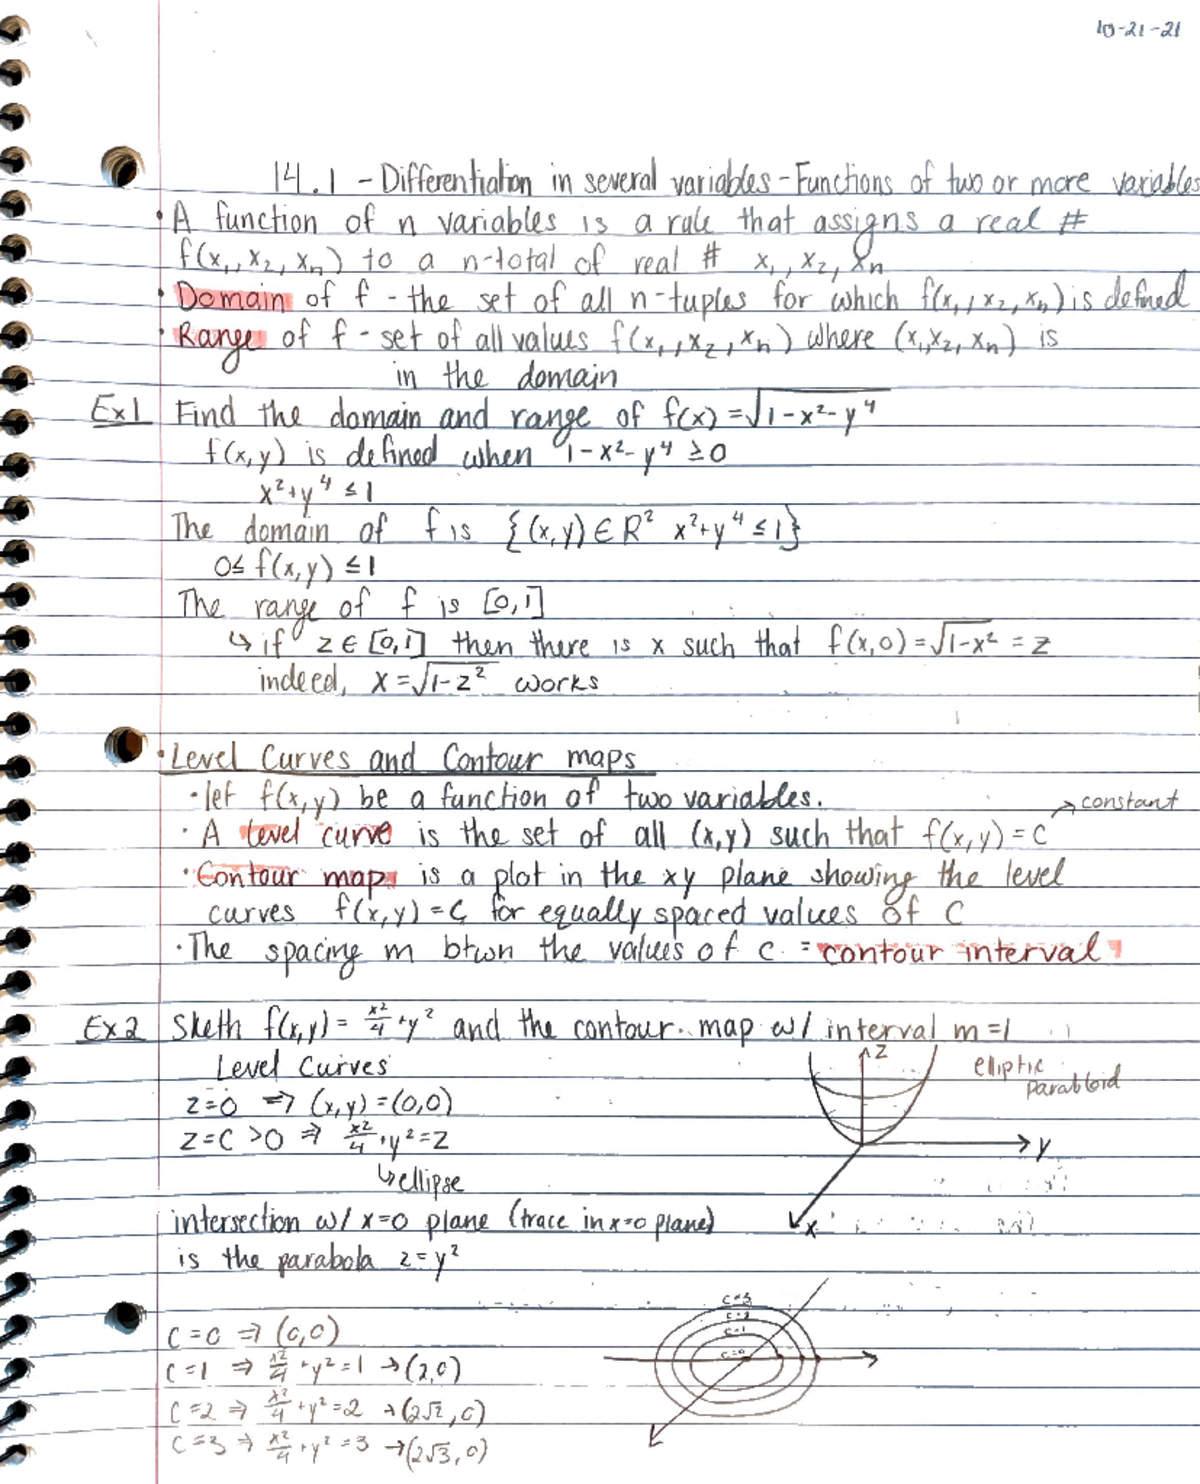 10-21-21
14.1 - Differentiation in several variables - Functions of two or more variables
• A function of n variables is a rule that assigns a real #
f(x₁, x₂, xₙ) to a n-total of real # x₁, x₂, xₙ
• Domain of f - the set of all n-tuples for which f(x₁, x₂, xₙ) is defined
• Range of f - set of all values f(x₁, x₂, xₙ) where (x₁, x₂, xₙ) is
in the domain
Ex1 Find the domain and range of f(x) = √1-x²-y⁴
f(x,y) is defined when 1-x²-y⁴ ≥ 0
x²+y⁴ ≤ 1
The domain of f is {(x,y) ∈ R² x²+y⁴ ≤ 1}
0 ≤ f(x,y) ≤ 1
The range of f is [0,1]
↳ if z ∈ [0,1] then there is x such that f(x,0) = √1-x² = z
indeed, x = √1-z² works
• Level Curves and Contour maps
• let f(x,y) be a function of two variables.
→ constant
• A level curve is the set of all (x,y) such that f(x,y) = C
• Contour map is a plot in the xy plane showing the level
curves f(x,y) = C, for equally spaced values of C
• The spacing m btwn the values of c = contour interval
Ex2 Sketh f(x,y) = x²/4 + y² and the contour map w/ interval m = 1
Level Curves
z
elliptic
Parabloid
z=0 ⇒ (x,y) = (0,0)
z=C >0 ⇒ x²/4 + y² = z
y
↳ ellipse
intersection w/ x=0 plane (trace in x=0 plane)
x
is the parabola z = y²
c=3
c=2
c=1
c=0
C=0 ⇒ (0,0)
C=1 ⇒ x²/4 + y² = 1 → (2,0)
C=2 ⇒ x²/4 + y² = 2 → (2√2, 0)
C=3 ⇒ x²/4 + y² = 3 → (2√3, 0)